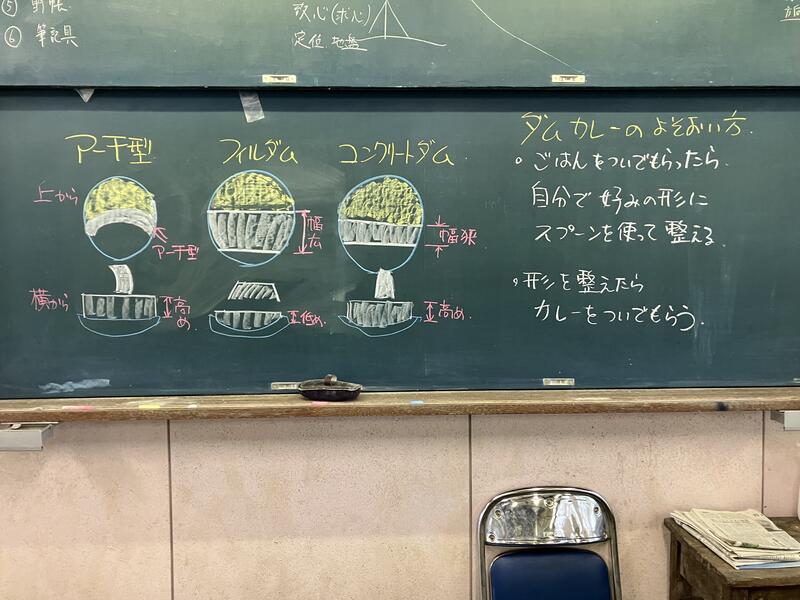 ⑤ 野帳
⑥ 筆記具
致心(求心)
定位 地盤
アーチ型
フィルダム
コンクリートダム
上から
アーチ型
幅広
幅狭
横から
高め
低め
高め
ダムカレーのよそおい方
○ごはんをついでもらったら
自分で好みの形に
スプーンを使って整える
○形を整えたら
カレーをついでもらう。